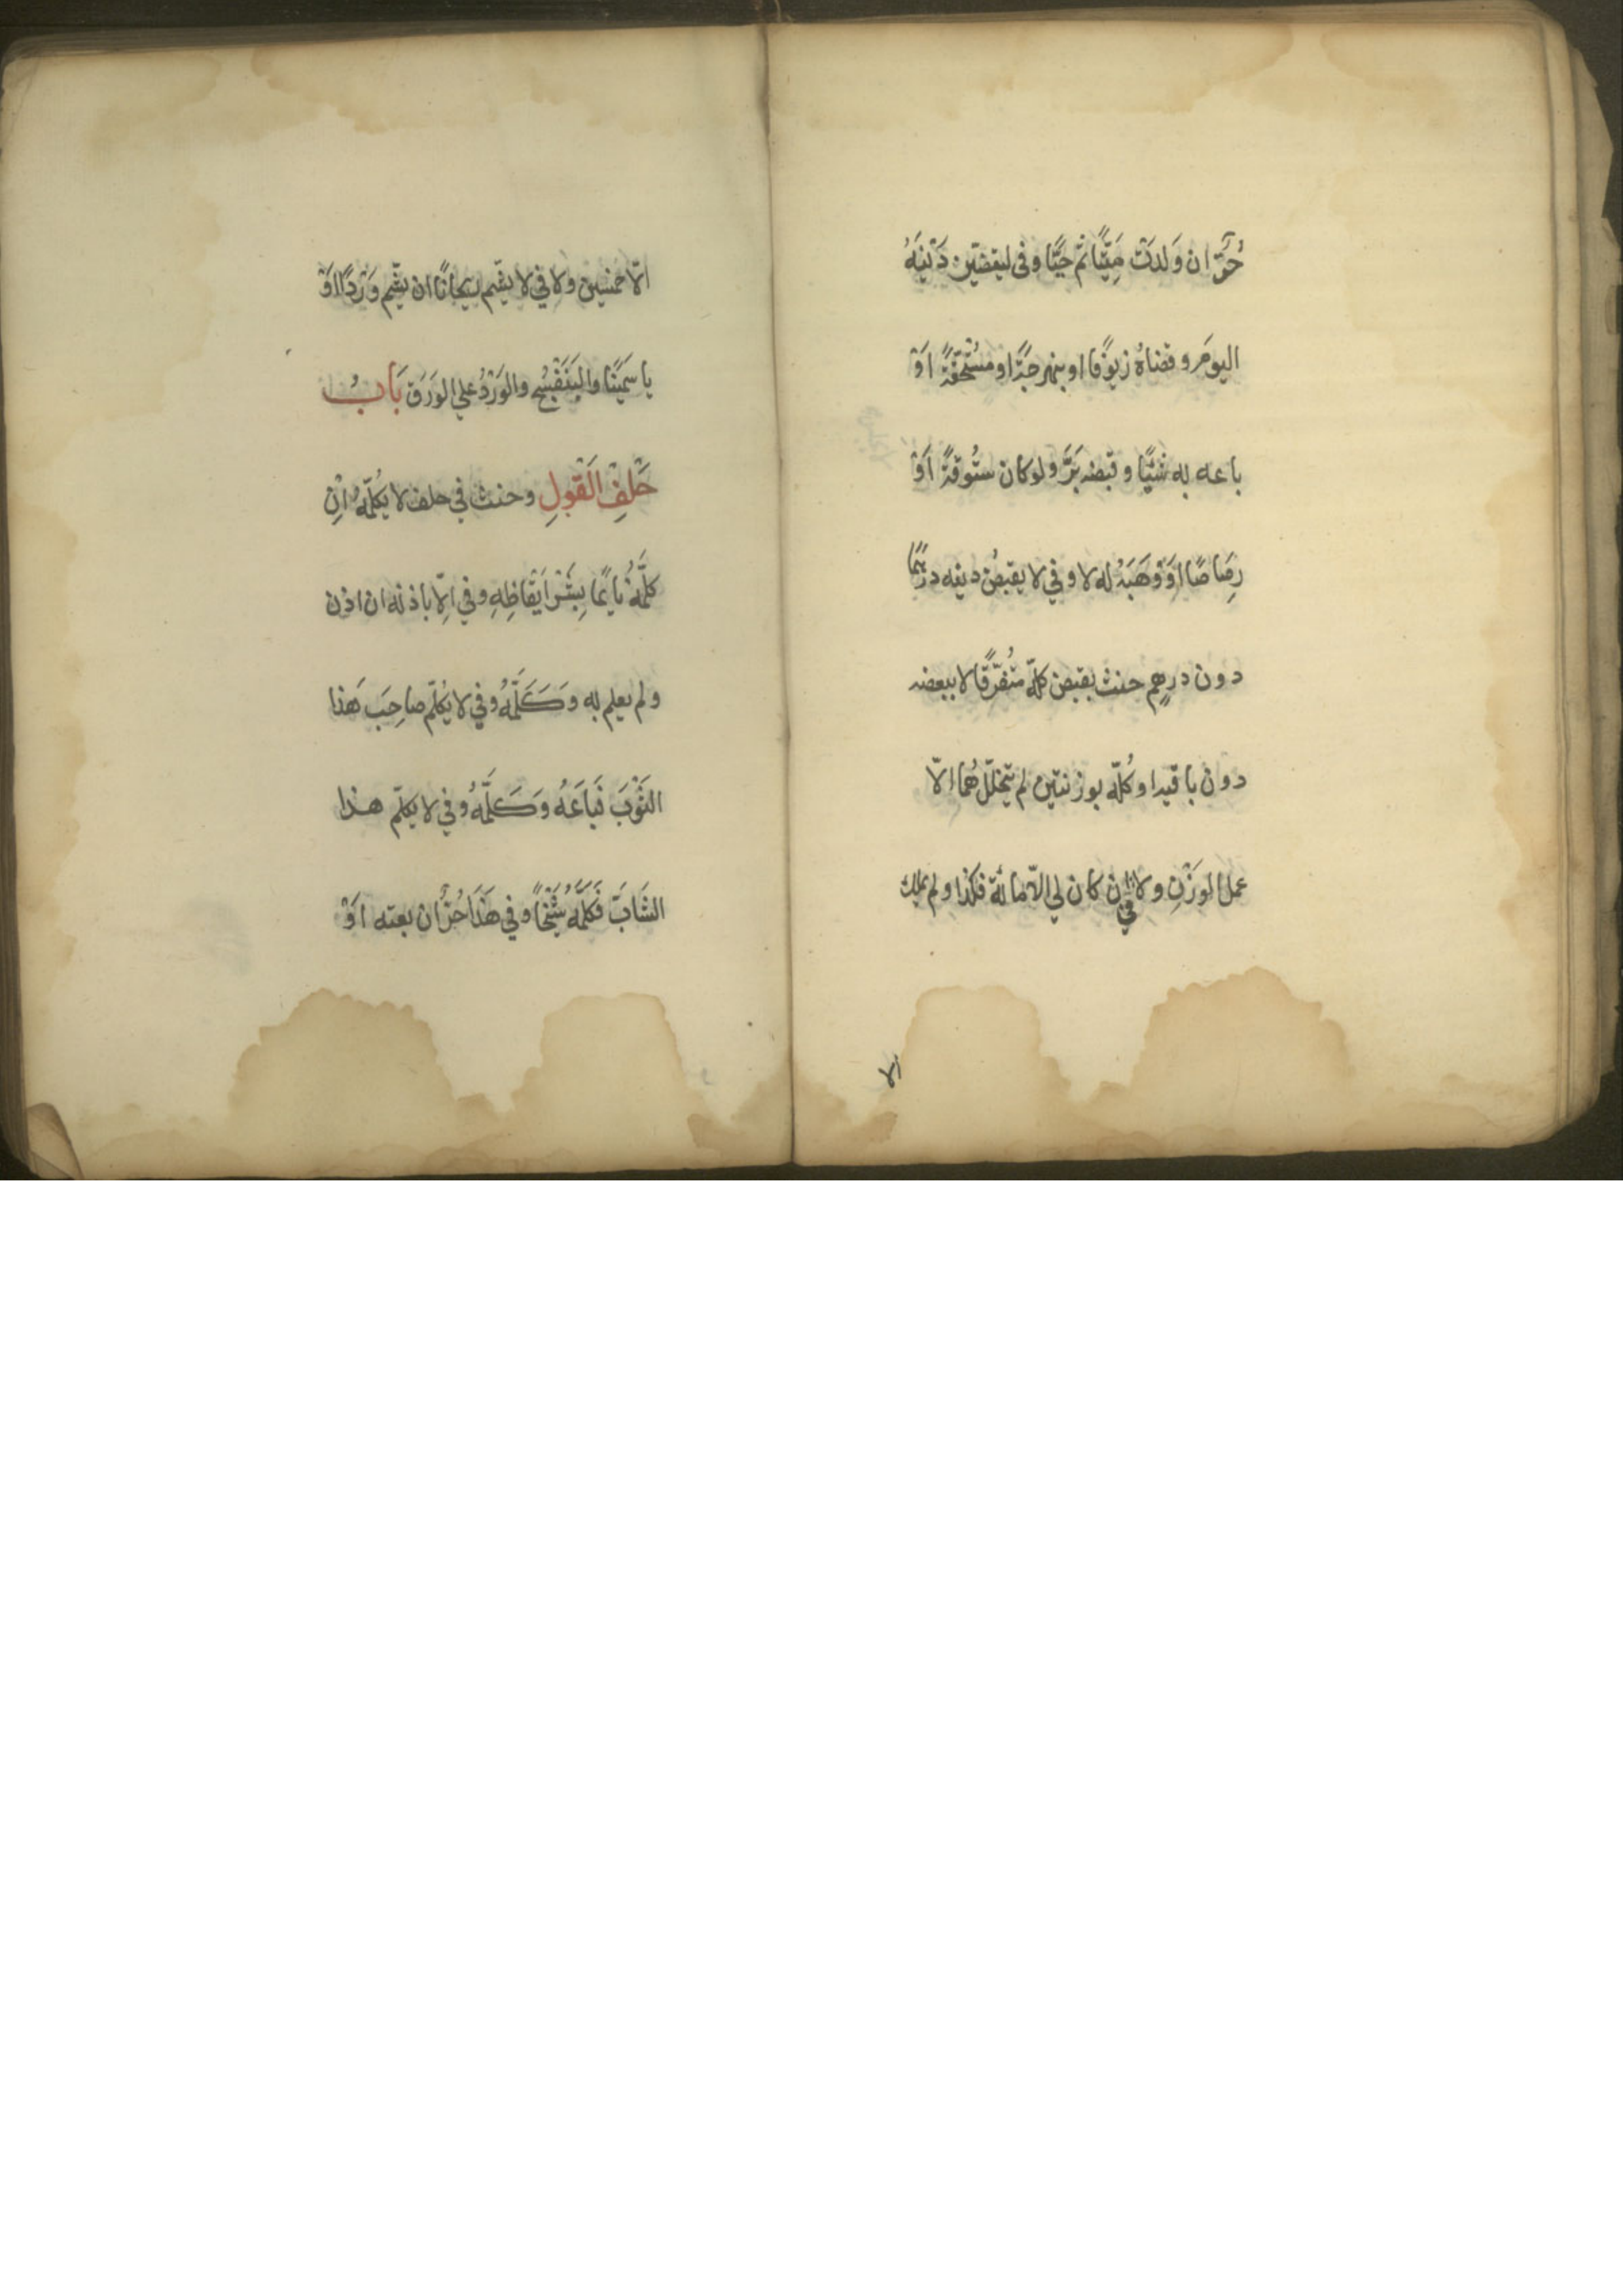 حُرٌّ ان وَلدَتْ مَيِّتًا ثم حيًّا وفى ليقضين دَيْنَهُ
اليومَ وقضاهُ زيوفًا او بنهرجَةً او مُسْتَحَقَّةً اَوْ
باعه به شَيْئًا وقبضه بَرَّ ولو كان سَتُّوقَةً اَوْ
رصَاصًا اوْ وَهَبَهُ له لا وفي لا يقبضُ دينه درهمًا
دون درهمٍ حنث بقبض كلّه مُتفَرِّقًا لا ببعضه
دون باقيه او كُلّه بوزنتين لم يتخلّلْهُما الّا
عمل الوزْنِ ولا في ان كان لي الّا مائة فكذا ولم يملك
الا
الّا خمسين ولا في لا يشَم ريحانًا ان يشم وَرْدًا اوْ
ياسمينًا والبَنَفْسَج والوَرْدُ على الوَرَق بَابُ
حَلْفِ الْقَوْلِ وحنث في حلف لا يكلّمُهُ اِنْ
كلَّمَهُ نايمًا بِشَرْط اِيْقَاظِهِ وفي اِلّا باذنه ان اذن
ولم يعلم به وَكَلَّمَهُ وفي لا يُكلّم صاحِبَ هَذا
الثَوْبَ فَبَاعَهُ وَكَلَّمَهُ وفي لا يكلّم هذا
الشَابَّ فَكَلَّمَهُ شَيْخًا وفي هَذَا حُرٌّ ان بعته اَوْ